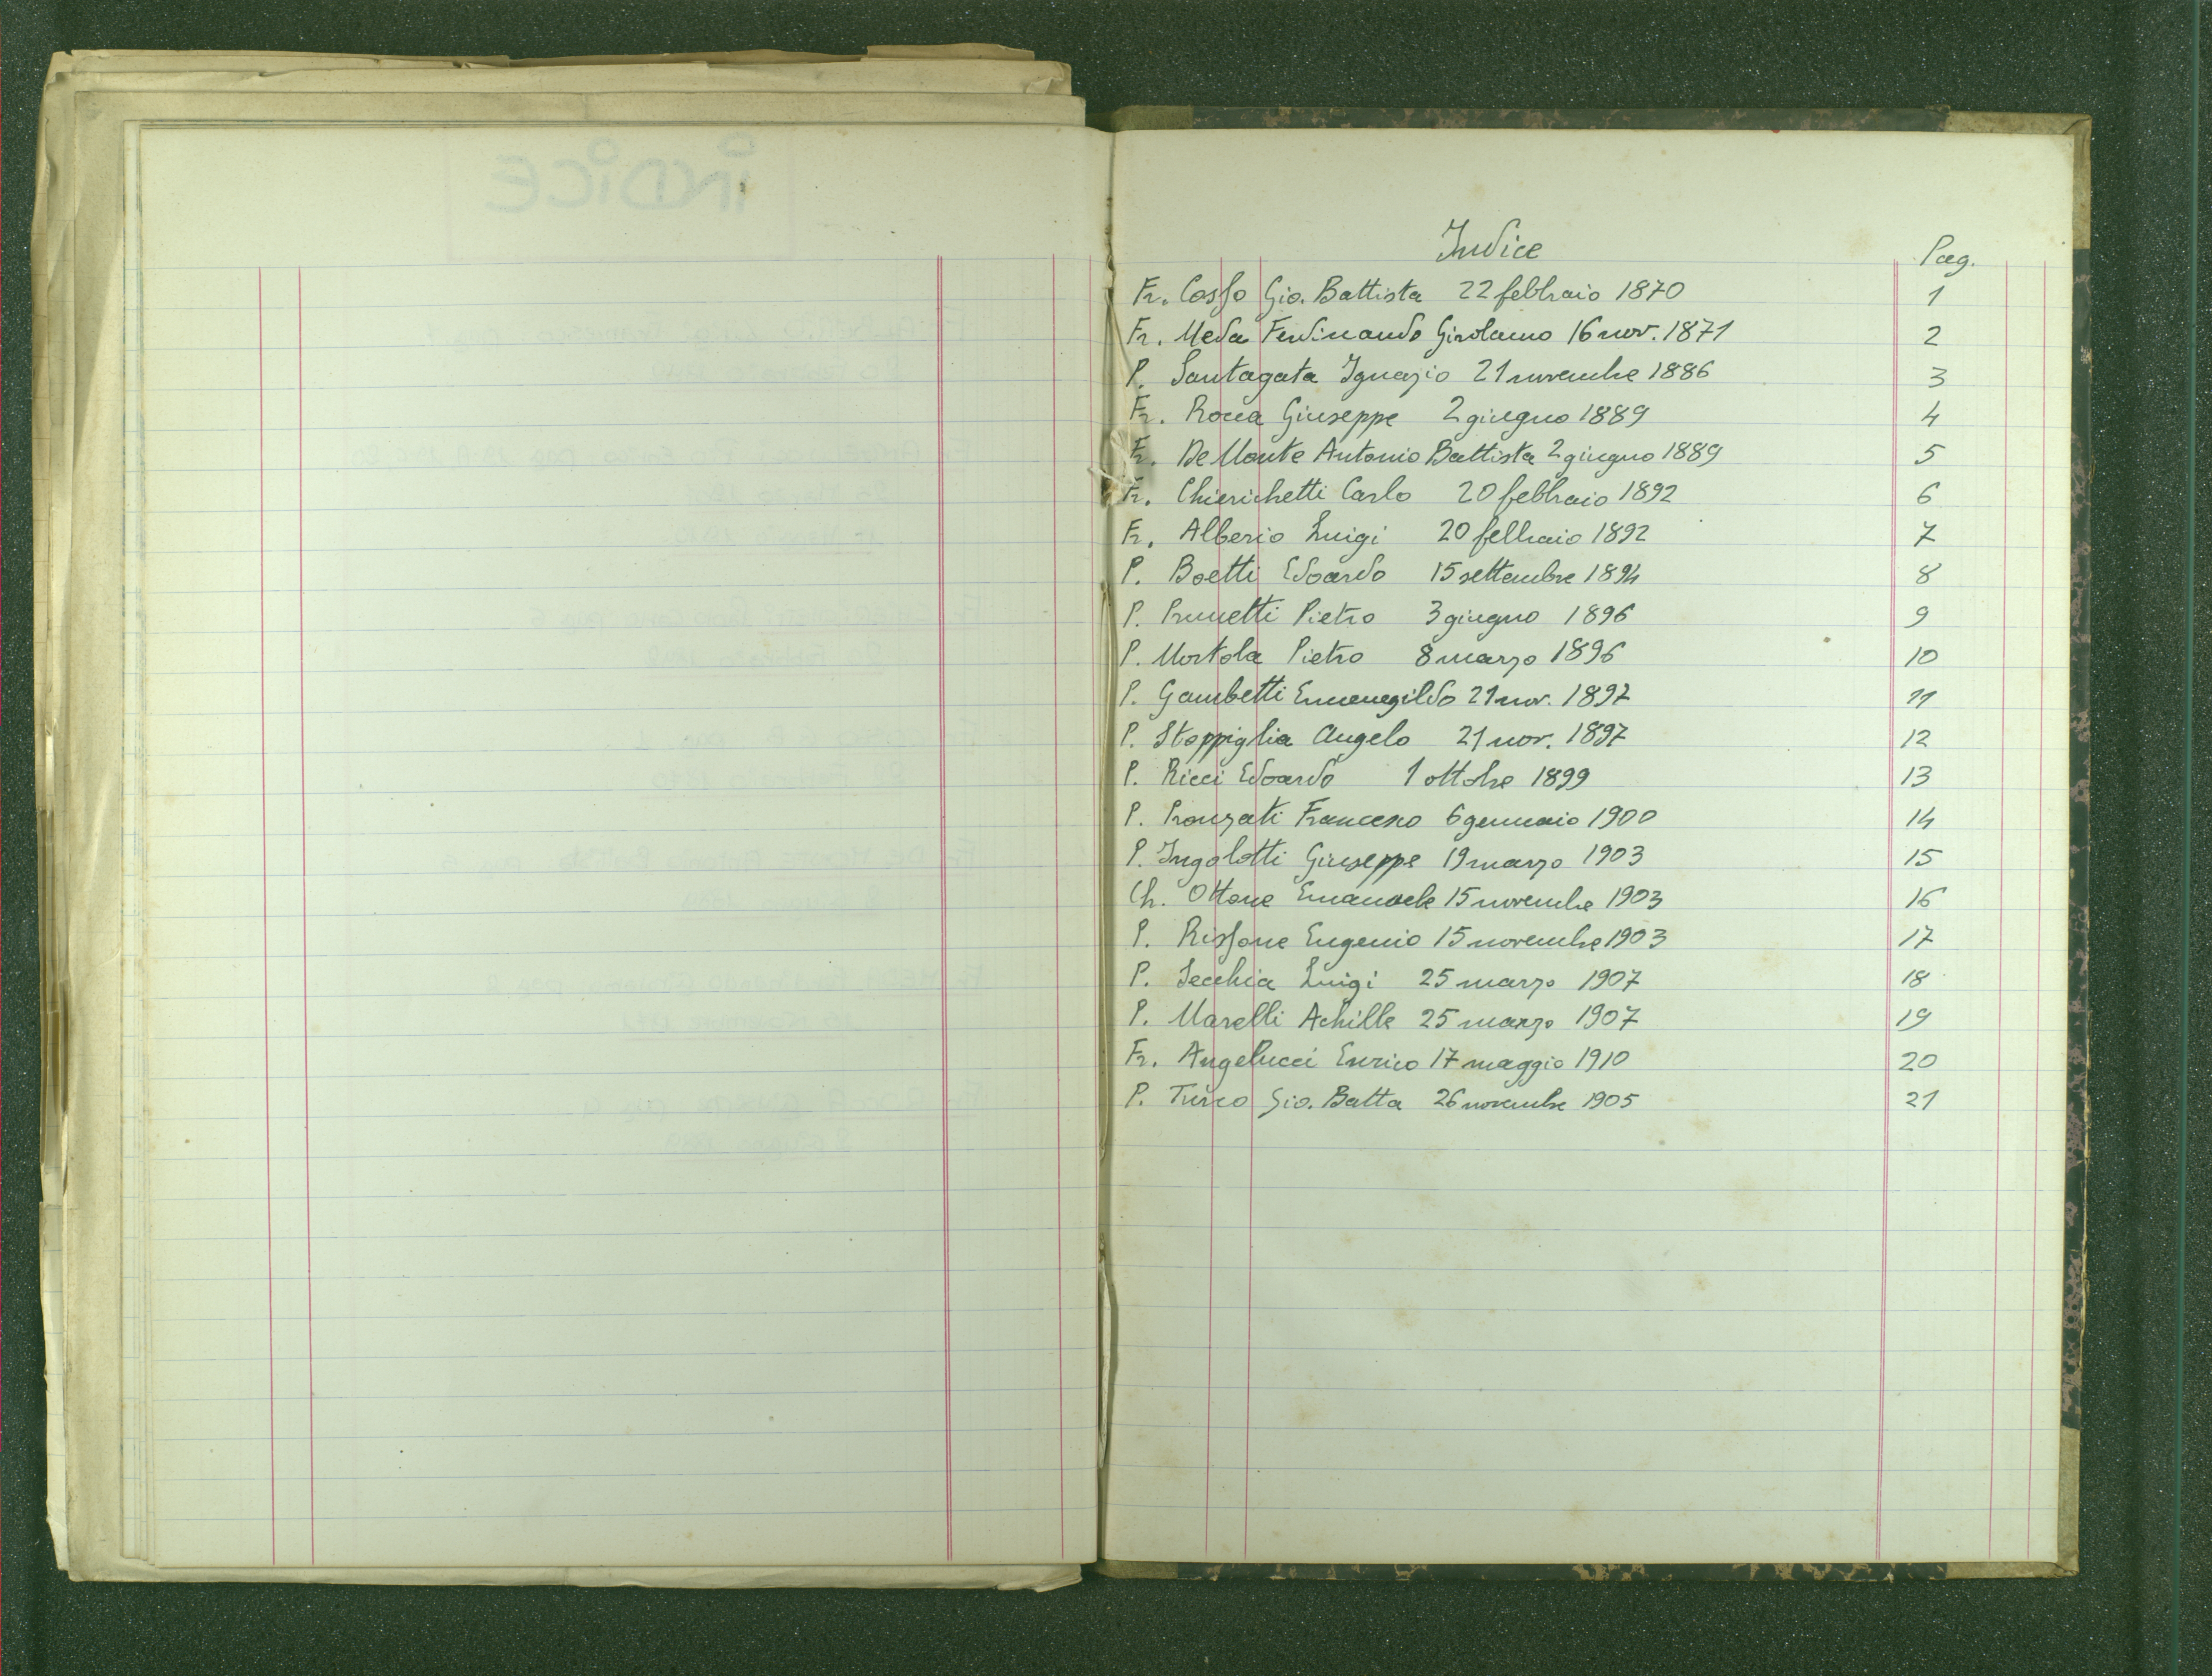 Indice Pag.
Fr. Cosso Gio. Battista 22 febbraio 1870 1
Fr. Meda Ferdinando Girolamo 16 nov. 1871 2
P. Santagata Ignazio 21 novembre 1886 3
Fr. Rocca Giuseppe 2 giugno 1889 4
Fr. De Monte Antonio Battista 2 giugno 1889 5
Fr. Chierichetti Carlo 20 febbraio 1892 6
Fr. Alberio Luigi 20 febbraio 1892 7
P. Boetti Edoardo 15 settembre 1894 8
P. Prunetti Pietro 3 giugno 1896 9
P. Mortola Pietro 8 marzo 1896 10
P. Gambetti Ermenegildo 21 nov. 1897 11
P. Stoppiglia Angelo 21 nov. 1897 12
P. Ricci Edoardo 1 ottobre 1899 13
P. Pronzati Francesco 6 gennaio 1900 14
P. Ingolotti Giuseppe 19 marzo 1903 15
Ch. Ottone Emanuele 15 novembre 1903 16
P. Rissone Eugenio 15 novembre 1903 17
P. Secchia Luigi 25 marzo 1907 18
P. Marelli Achille 25 marzo 1907 19
Fr. Angelucci Enrico 17 maggio 1910 20
P. Turco Gio. Batta 26 novembre 1905 21